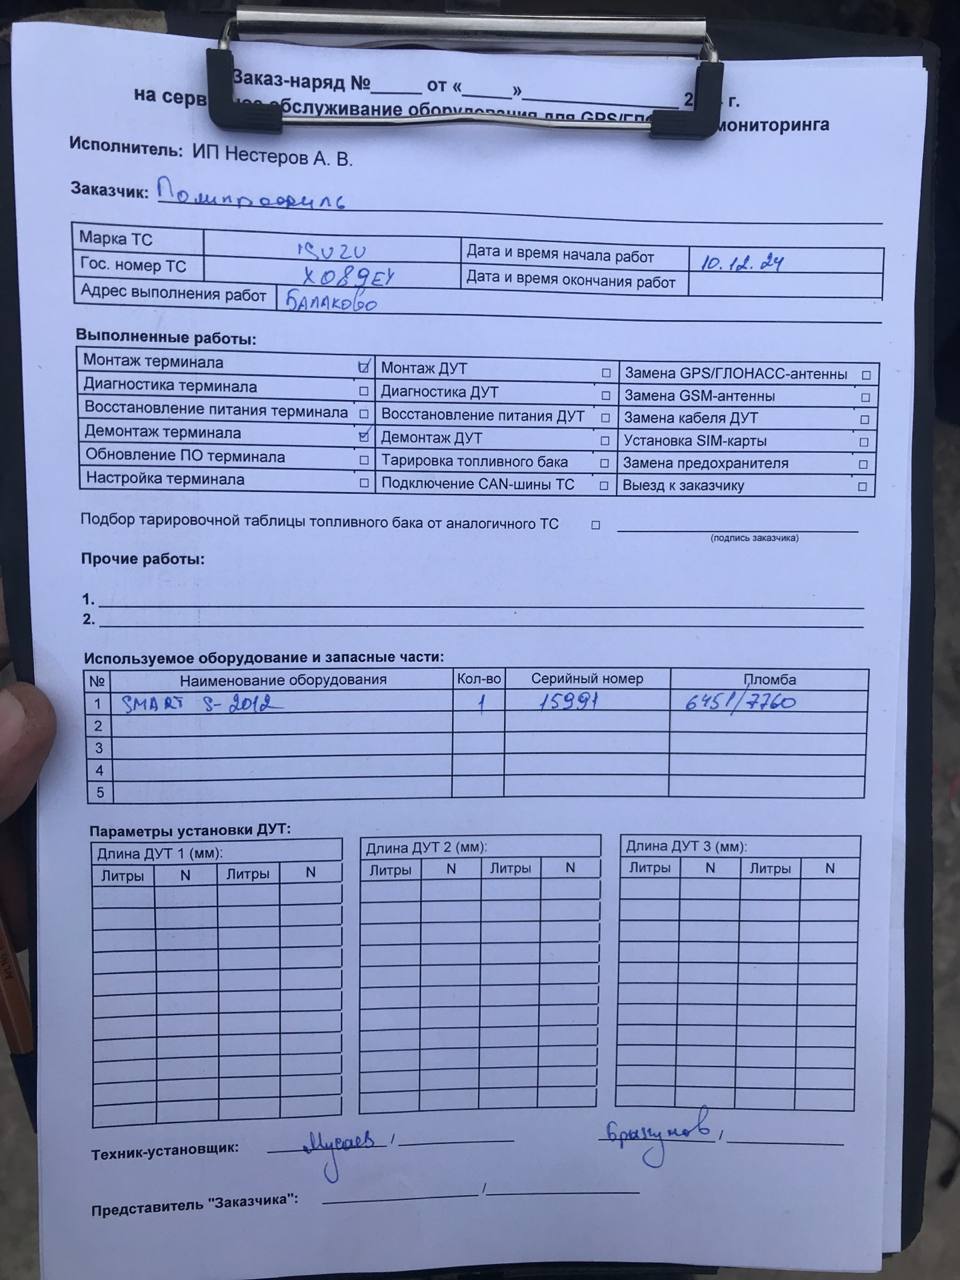 Заказ-наряд №_____ от «_____»_______________ 2 г.
обслуживание оборудования для GPS/ мониторинга
Исполнитель: ИП Нестеров А. В.
Заказчик: Полипрофиль
Марка ТС ISUZU Дата и время начала работ 10.12.24
Гос. номер ТС Х089ЕУ Дата и время окончания работ
Адрес выполнения работ БАЛАКОВО
Выполненные работы:
Монтаж терминала ☑ Монтаж ДУТ □ Замена GPS/ГЛОНАСС-антенны □
Диагностика терминала □ Диагностика ДУТ □ Замена GSM-антенны □
Восстановление питания терминала □ Восстановление питания ДУТ □ Замена кабеля ДУТ □
Демонтаж терминала ☑ Демонтаж ДУТ □ Установка SIM-карты □
Обновление ПО терминала □ Тарировка топливного бака □ Замена предохранителя □
Настройка терминала □ Подключение CAN-шины ТС □ Выезд к заказчику □
Подбор тарировочной таблицы топливного бака от аналогичного ТС □
(подпись заказчика)
Прочие работы:
1.
2.
Используемое оборудование и запасные части:
№ Наименование оборудования Кол-во Серийный номер Пломба
1 SMART S-2012 1 15991 6451/7760
2
3
4
5
Параметры установки ДУТ:
Длина ДУТ 1 (мм): Длина ДУТ 2 (мм): Длина ДУТ 3 (мм):
Литры N Литры N Литры N Литры N Литры N Литры N
Техник-установщик: Мусаев / Брызгунов /
Представитель "Заказчика": /